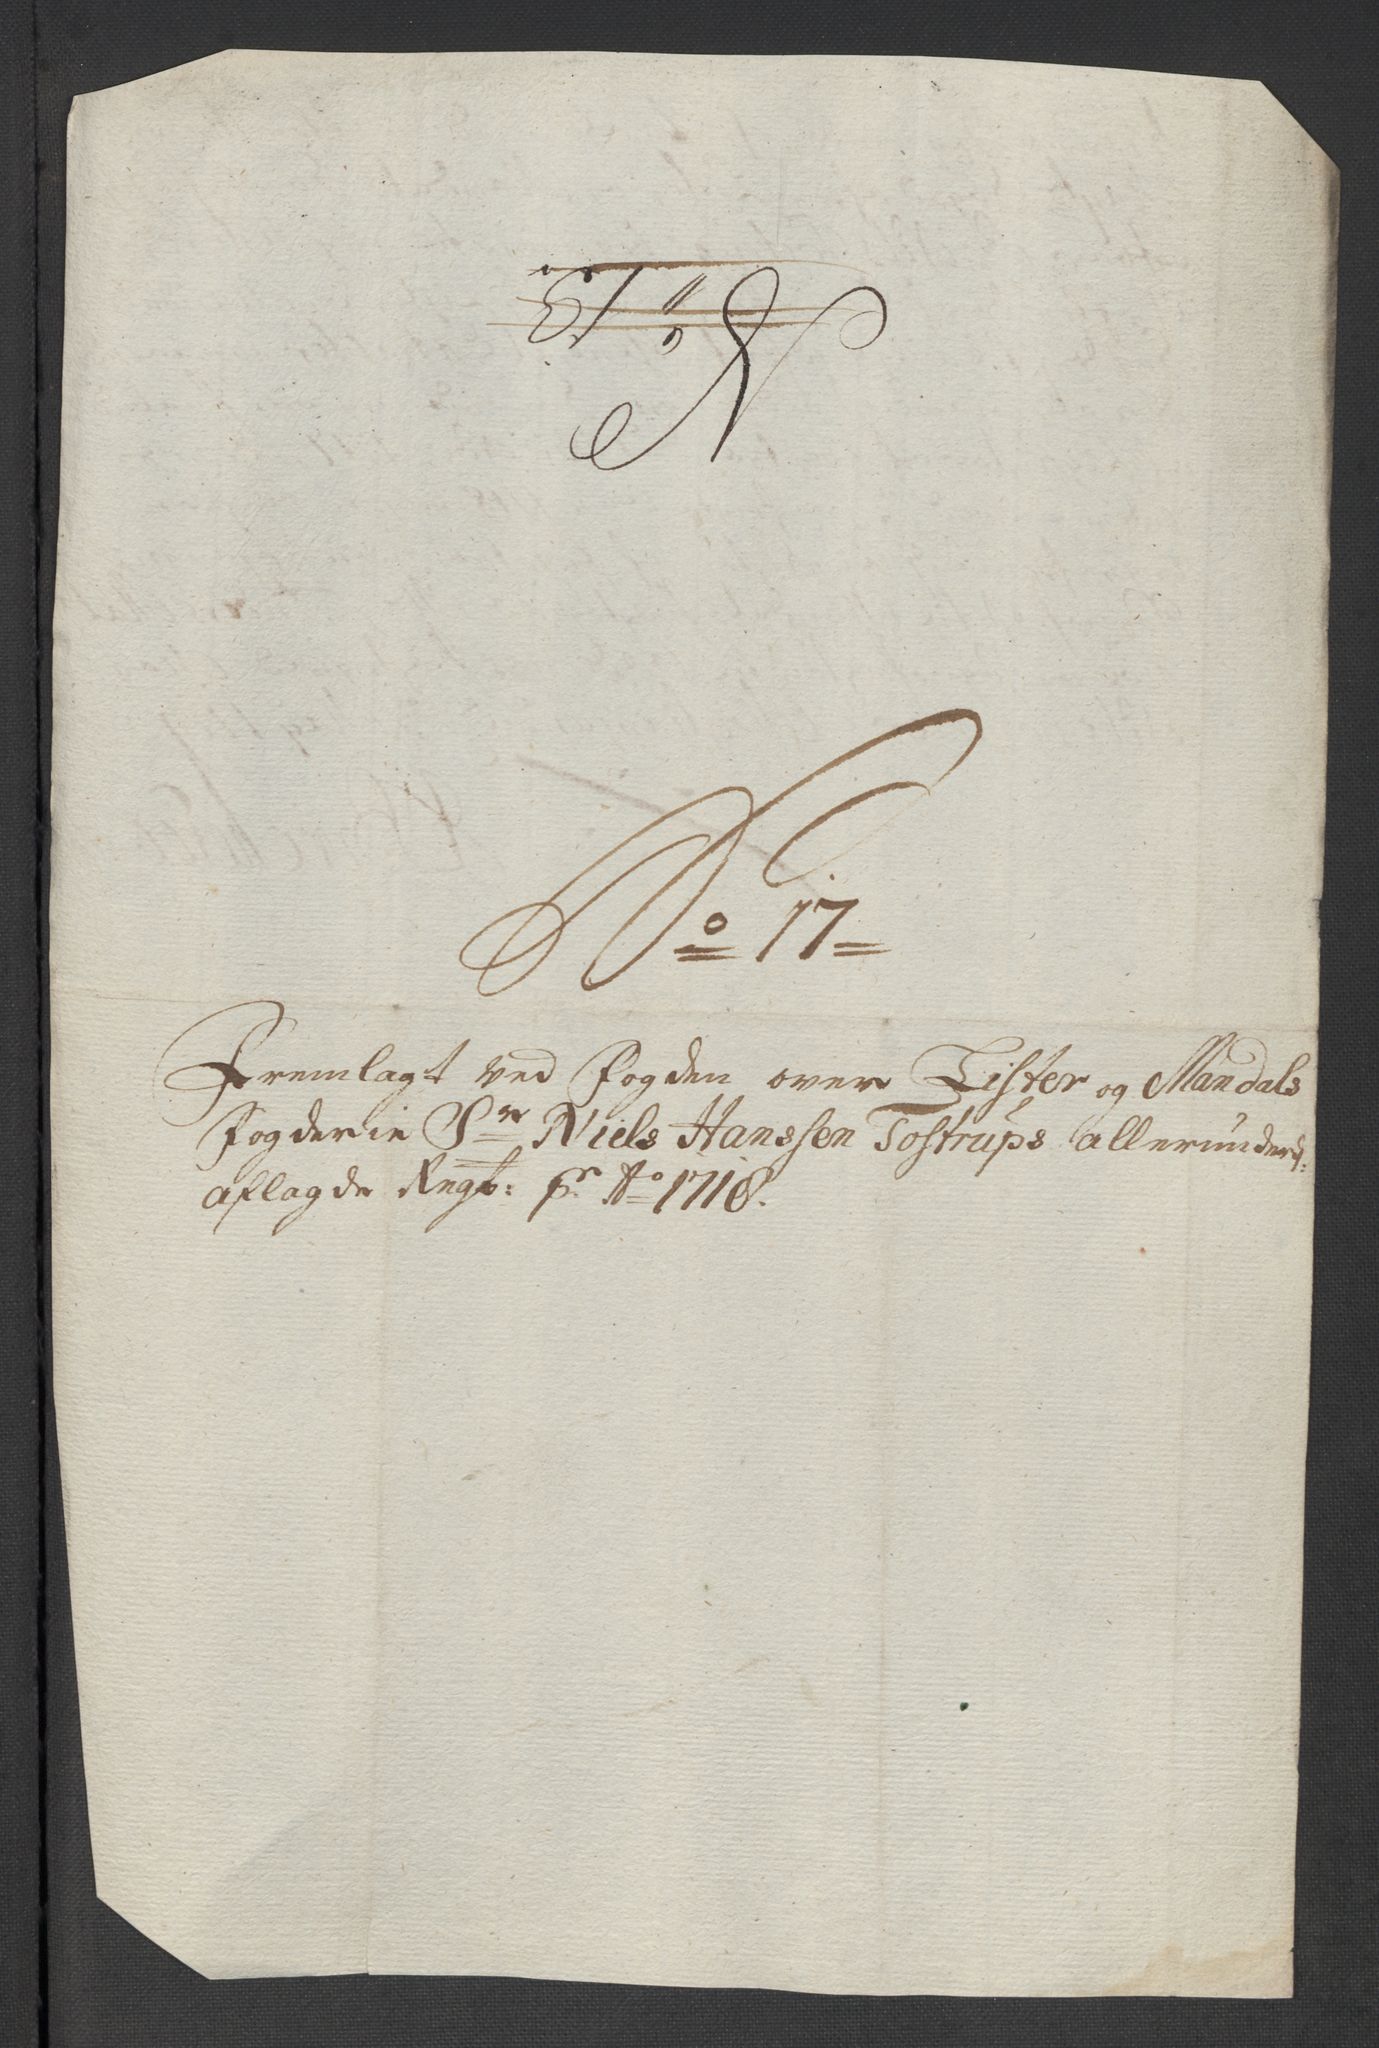 No 13
No 17
Fremlagt ved Fogden over Lister og Mandals
fogderie Sr Niels Hanssen Tostrups allerunderd:
aflagde Regt: pr Ao 1718.